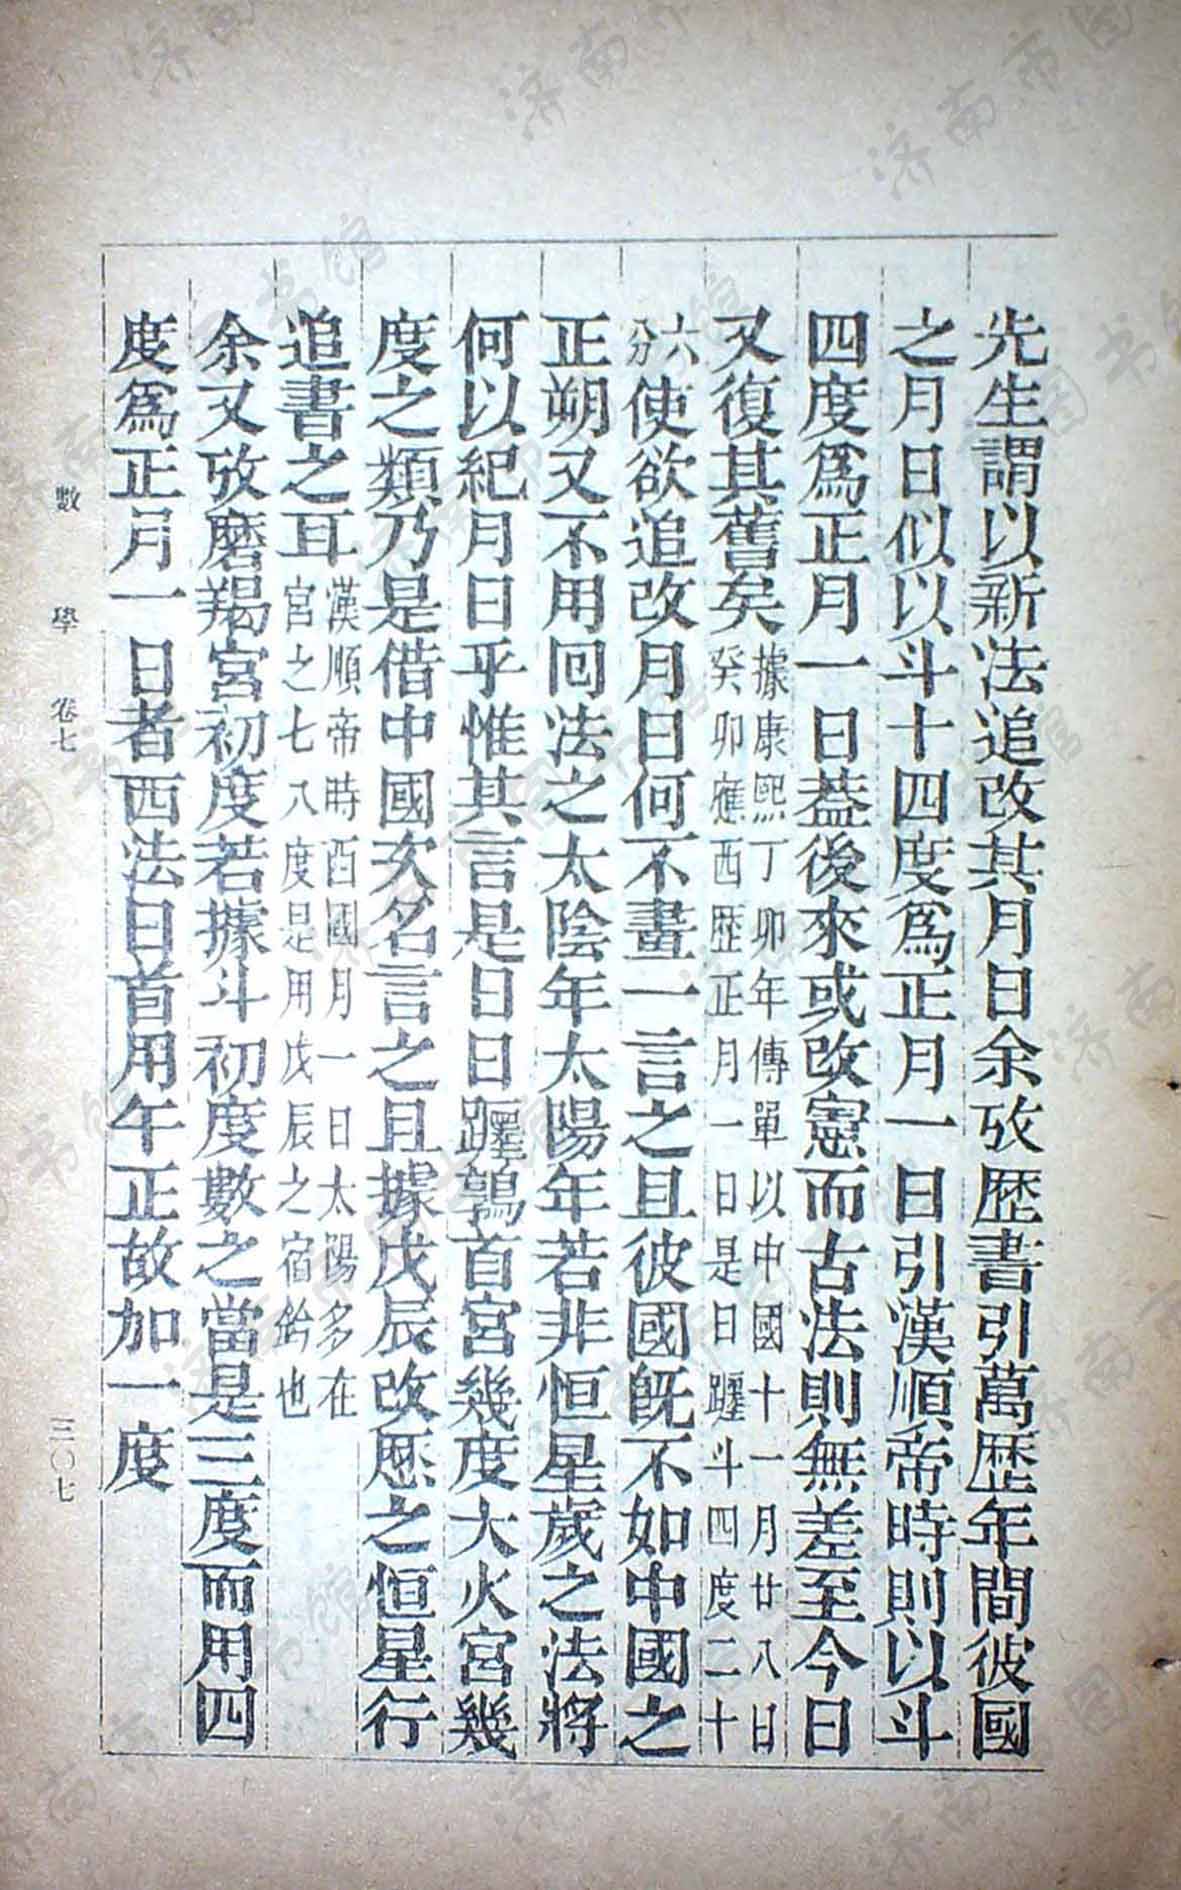 先生謂以新法追改其月日余攷歴書引萬歴年間彼國
之月日似以斗十四度爲正月一日引漢順帝時則以斗
四度爲正月一日葢後來或改憲而古法則無差至今日
又復其舊矣據康熙丁卯年傳單以中國十一月廿八日
癸卯應西歴正月一日是日躔斗四度二十
六
分使欲追改月日何不畫一言之且彼國旣不如中國之
正朔又不用回法之太陰年太陽年若非恒星歲之法將
何以紀月日乎惟其言是日日躔鶉首宮幾度大火宮幾
度之類乃是借中國次名言之且據戊辰改歴之恒星行
追書之耳漢順帝時西國月一日太陽多在
宮之七八度是用戊辰之宿鈐也
余又攷磨羯宮初度若據斗初度數之當是三度而用四
度爲正月一日者西法日首用午正故加一度
數學 卷七 三〇七